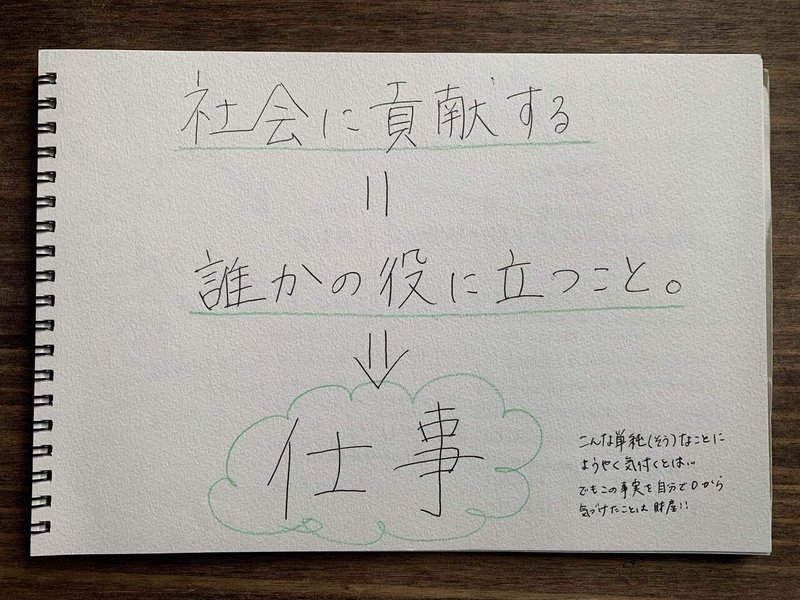 社会に貢献する
＝
誰かの役に立つこと。
⇓
仕事
こんな単純(そう)なことに
ようやく気付くとは…
でもこの事実を自分で0から
気づけたことは財産!!